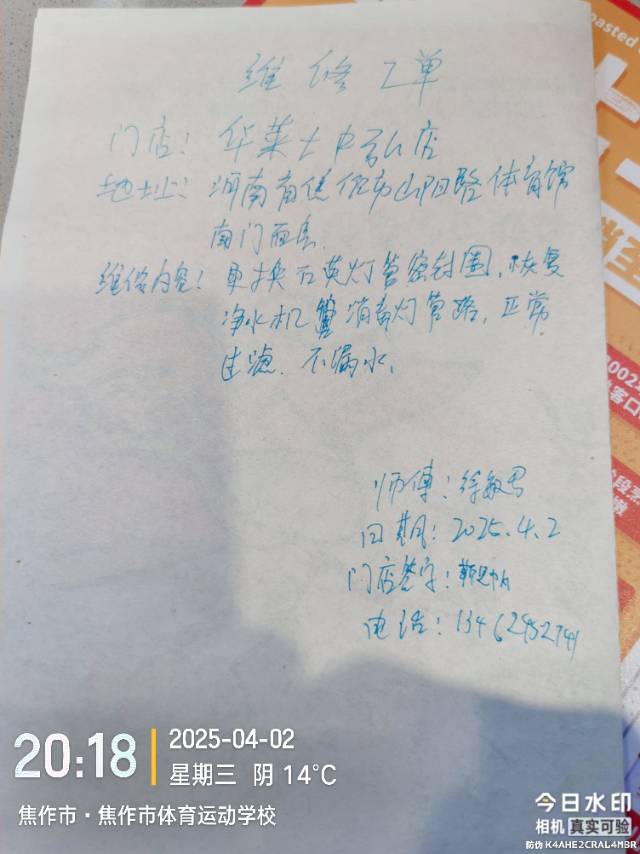 维修工单
门店：华莱士中弘店
地址：河南省焦作市山阳路体育馆
南门西.
维修内容：更换石英灯管密封圈，恢复
净水机 消毒灯管路，正常
过滤．不漏水．
师傅：徐敏
日期：2025.4.2
门店签字：
电话：13462952741
20:18
2025-04-02
星期三 阴 14°C
焦作市·焦作市体育运动学校
今日水印
相机 真实可验
防伪 K4AHE2CRAL4MBR
oasted